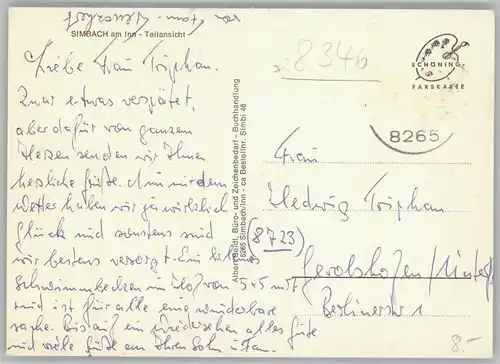 SIMBACH am Inn - Teilansicht
Liebe Frau Triphan.
Zwar etwas verspätet,
aber dafür von ganzem
Herzen senden wir Ihnen
herzliche Grüße. Nun mit dem
Wetter haben wir ja wirklich
Glück und sonstens sind
wir bestens versorgt. Ein
Schwimmbecken im Hof von 5x5 mtr
und ist für alle eine wunderbare
Sache. Bis auf ein Wiedersehen alles Gute
und viele Grüße an Ihren Sohn u. Fam.
von Fam.
Albert Seidl, Büro- und Zeichenbedarf - Buchhandlung
8265 Simbach/Inn - ca Bestellnr. Simbi 46
8346
SCHÖNING
FARBKARTE
8265
Frau
Hedwig Triphan
(8723)
Gerolzhofen/
Berlinerstr 1
8.-